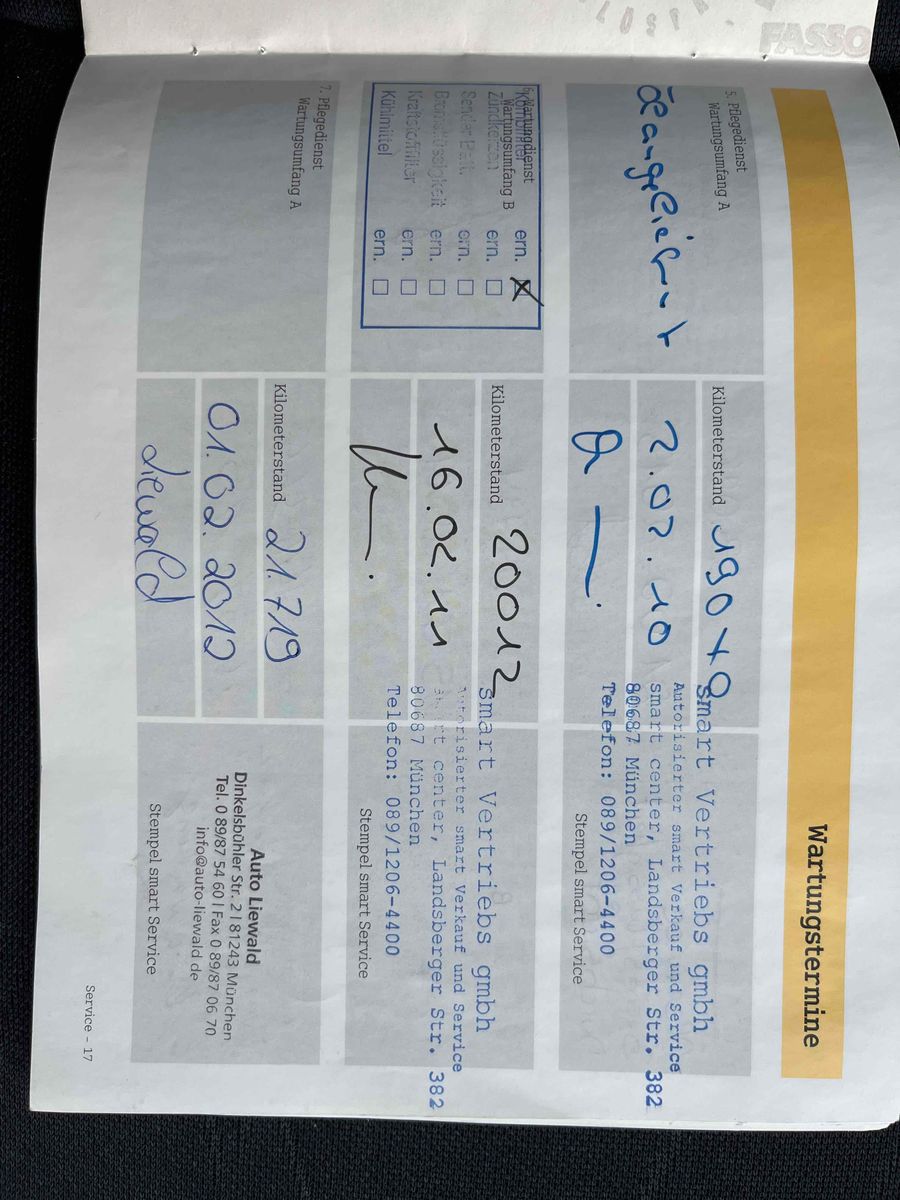 FASSO
Wartungstermine
5. Pflegedienst
Wartungsumfang A
Kilometerstand
2.02.10
smart Vertriebs gmbh
Autorisierter smart Verkauf und Service
smart center, Landsberger Str. 382
80687 München
Telefon: 089/1206-4400
Stempel smart Service
6. Wartungdienst
Wartungsumfang B
Kombifilter ern.
Zündkerzen ern.
Sender Batt. ern.
Bremsflüssigkeit ern.
Kraftstofffilter ern.
Kühlmittel ern.
Kilometerstand 20012
16.02.11
smart Vertriebs gmbh
Autorisierter smart Verkauf und Service
smart center, Landsberger Str. 382
80687 München
Telefon: 089/1206-4400
Stempel smart Service
7. Pflegedienst
Wartungsumfang A
Kilometerstand 21.719
01.02.2012
Liewald
Auto Liewald
Dinkelsbühler Str. 2 | 81243 München
Tel. 0 89/87 54 60 | Fax 0 89/87 06 70
info@auto-liewald de
Stempel smart Service
Service - 17